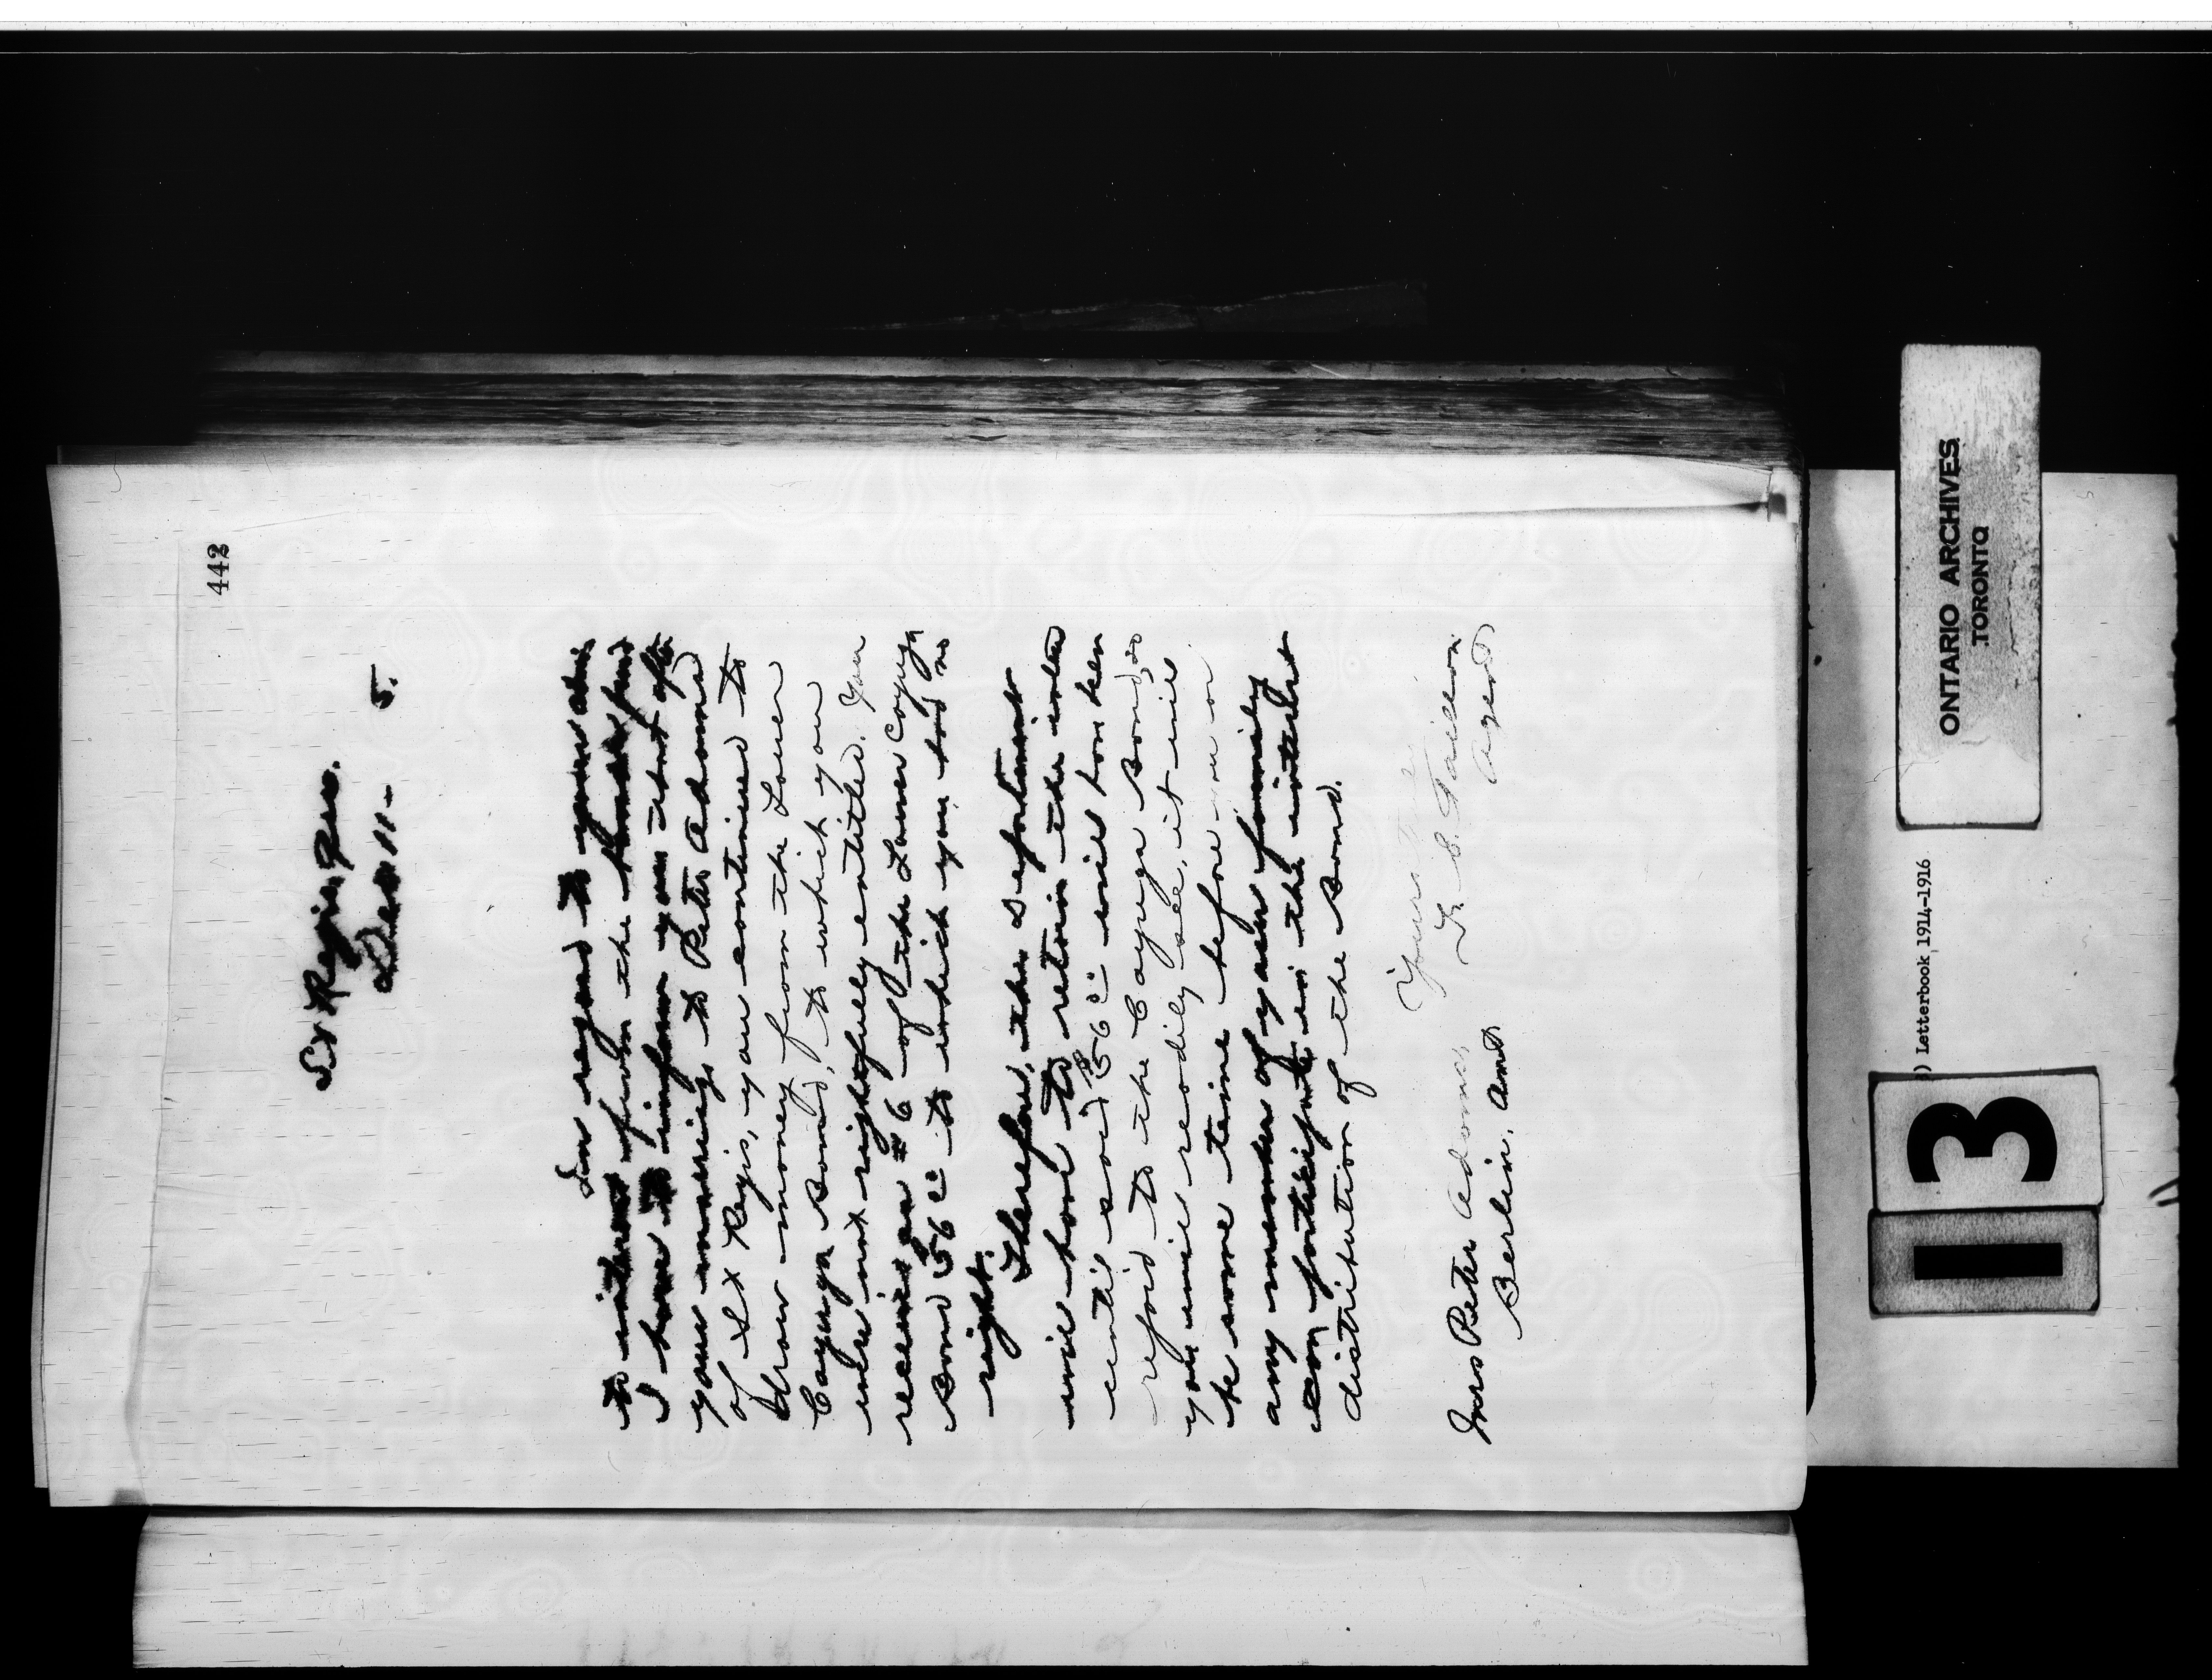 442
St Regis, Que.
Dec 11- 5.
In regard to your claim
to interest from the
I have to inform you that after
your marriage to Peter Adams
of St Regis, you continued to
draw money from the Lower
Cayuga Band, to which you
were not rightfully entitled. You
received as #6 of the Lower Cayuga
Band to which you had no
right.
Therefore, the Department
will have to retain the interest
until said will have been
refunded to the Cayuga Band, so
you will readily see, it will
be some time before you or
any member of your family
can participate in the interest
distribution of the Band.
Yours
Agent
Mrs Peter Adams,
Berlin, Ont
ONTARIO ARCHIVES
TORONTO
) Letterbook 1914-1916
13